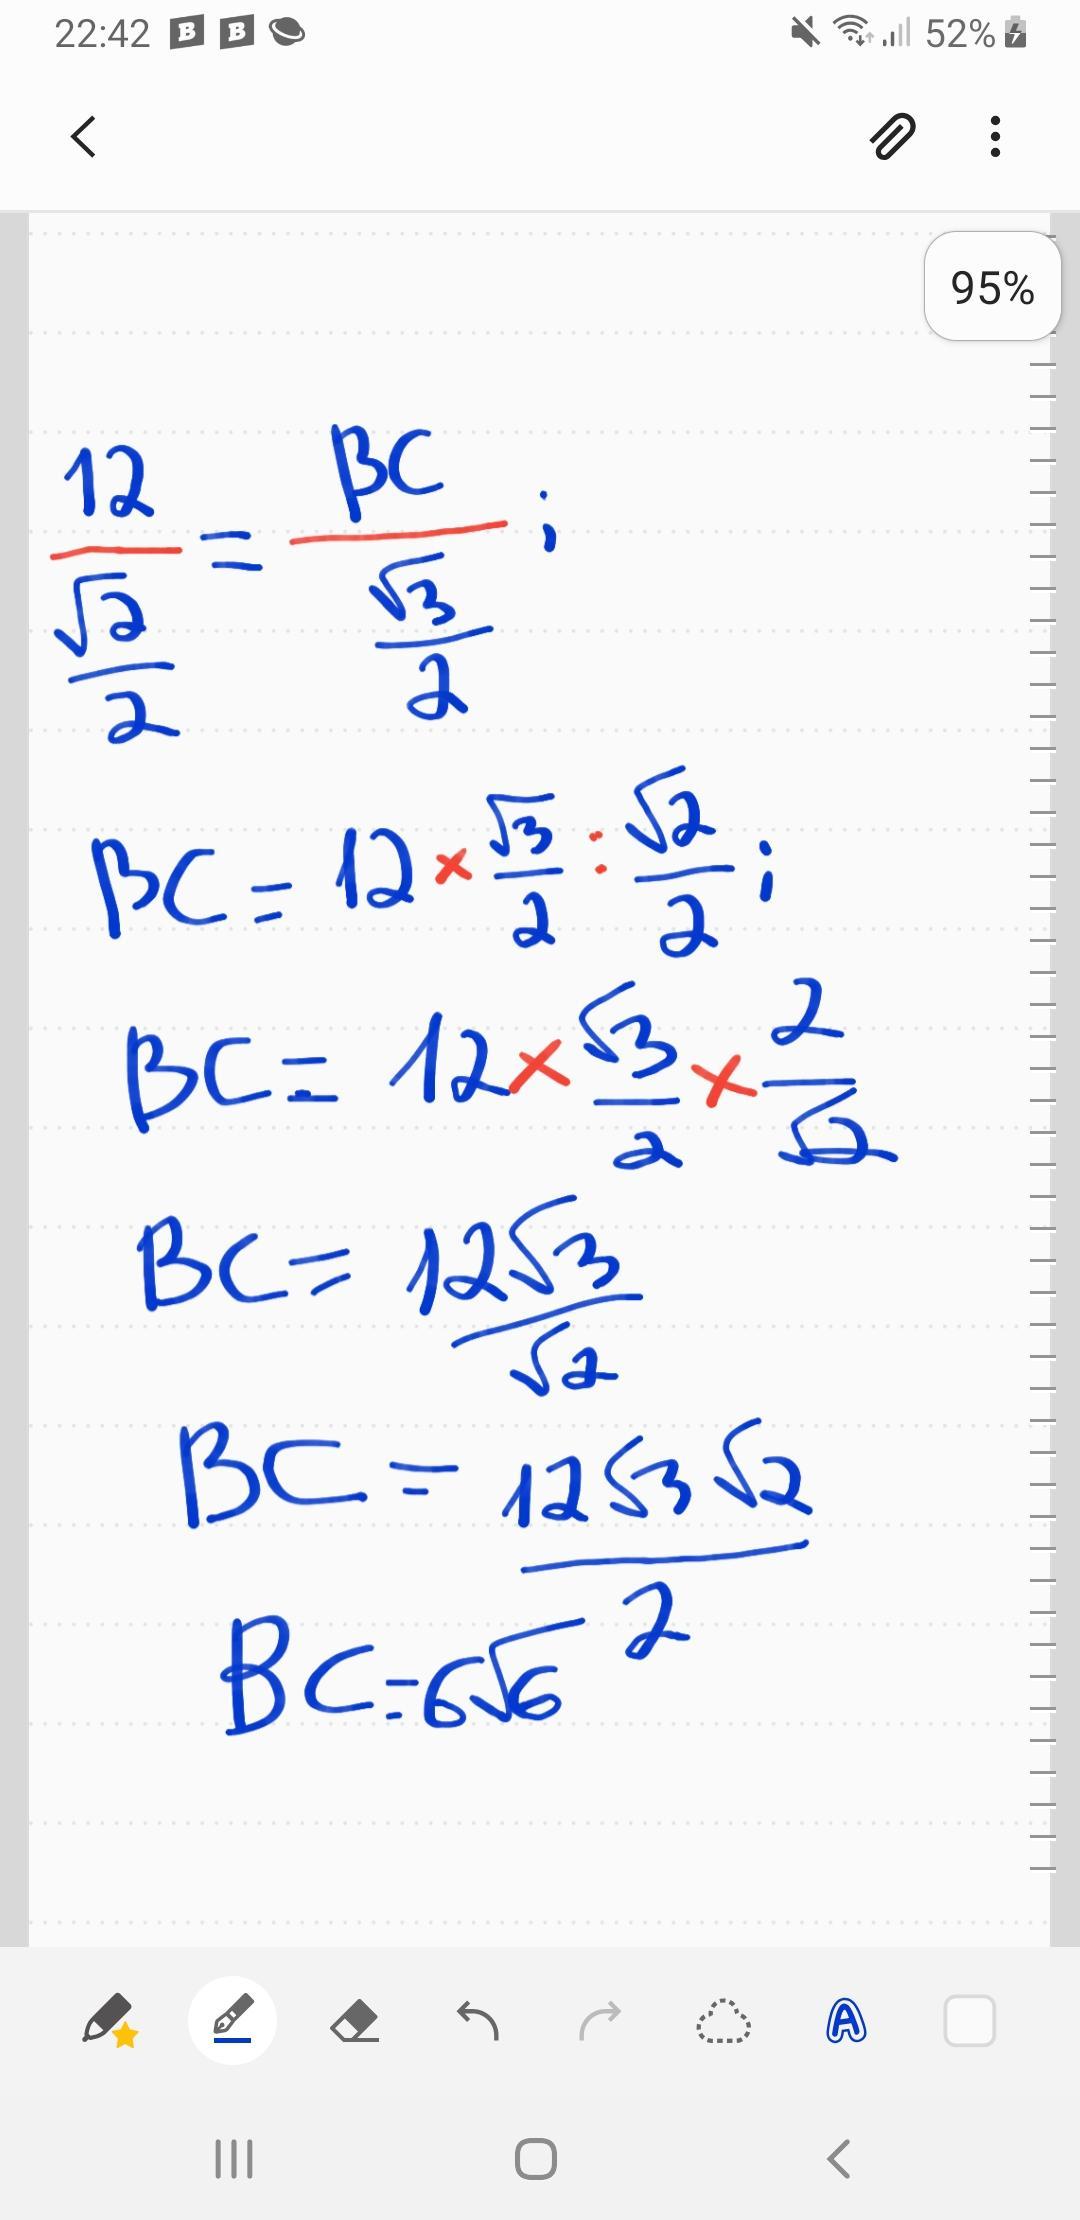 22:42 B B 52%
95%
12/(√2/2) = BC/(√3/2) ;
BC = 12 × √3/2 : √2/2 ;
BC = 12 × √3/2 × 2/√2
BC = 12√3/√2
BC = 12√3√2/2
BC = 6√6
A